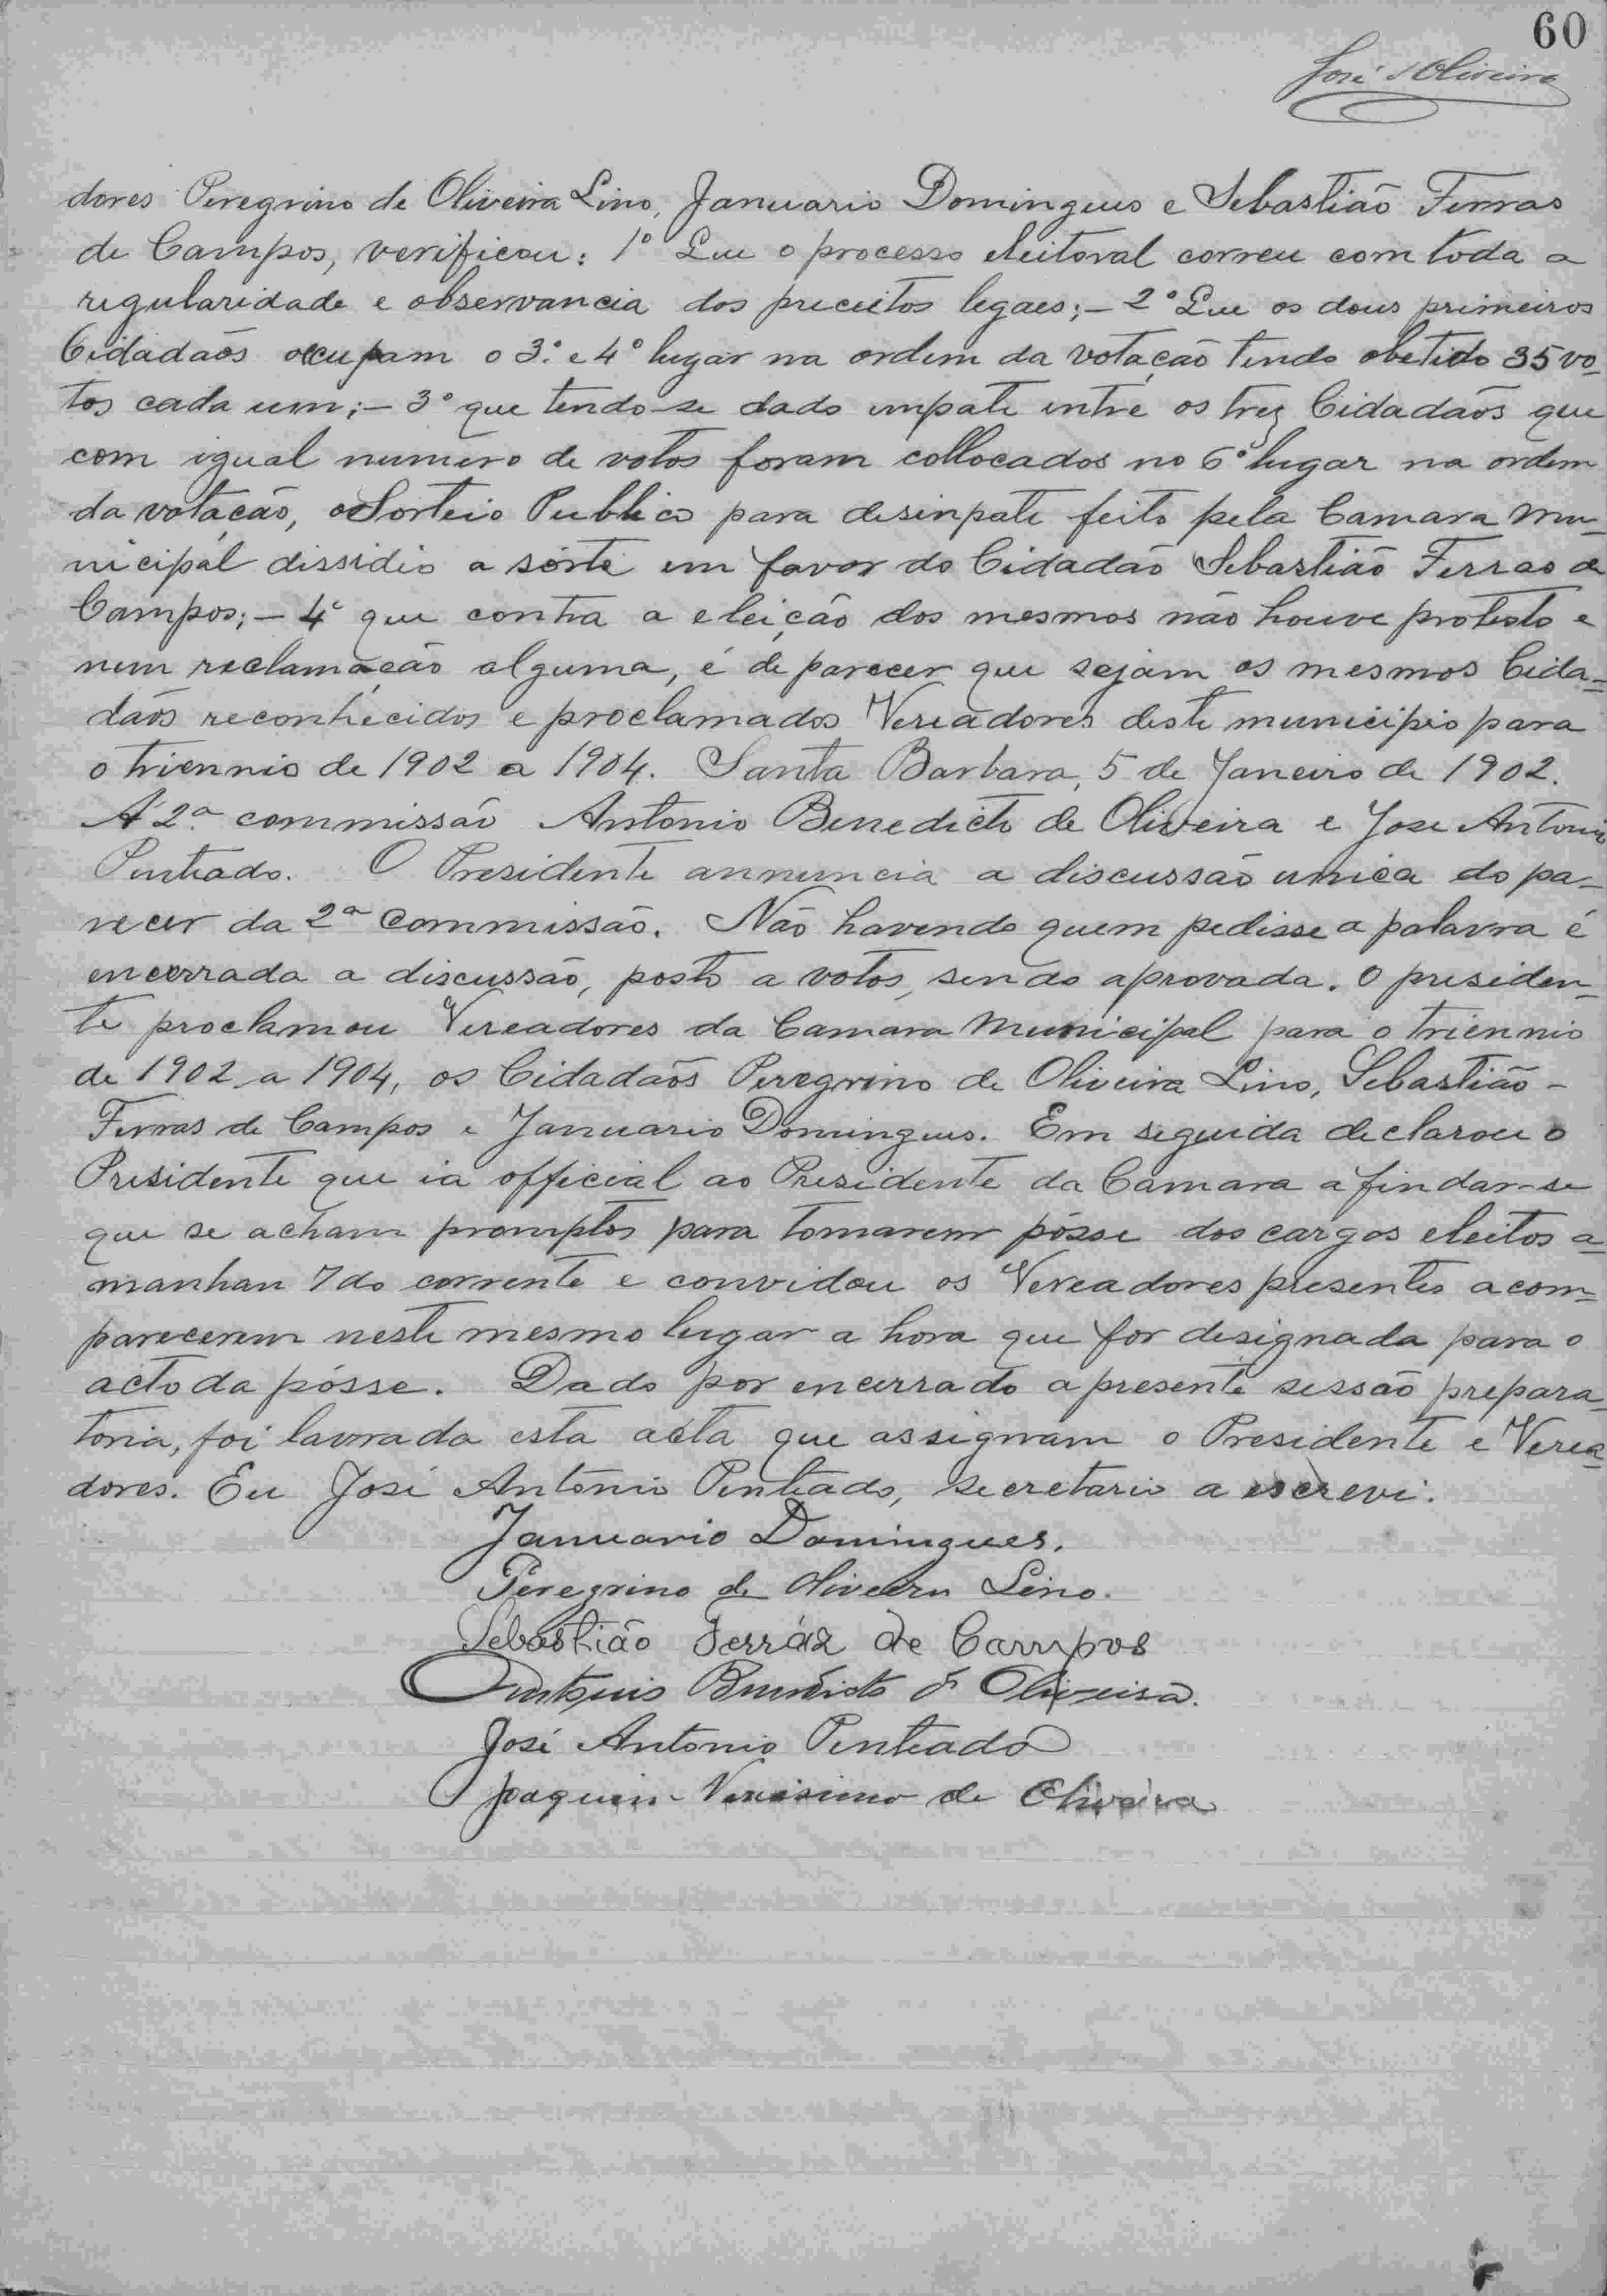 60
José d'Oliveira
dores Peregrino de Oliveira Lino, Januario Domingues e Sebastião Ferras
de Campos, verificou: 1º Que o processo eleitoral correu com toda a
regularidade e observancia dos preceitos legaes; - 2º Que os dous primeiros
Cidadãos occupam o 3º e 4º lugar na ordem da votação tendo obetido 35 vo-
tos cada um; - 3º que tendo-se dado impate entre os trez Cidadãos que
com igual numero de votos foram collocados no 6º lugar na ordem
da votação, o Sorteio Publico para desinpate feito pela Camara Mu-
nicipal dissidio a sorte em favor do Cidadão Sebastião Ferras de
Campos; - 4º que contra a eleição dos mesmos não houve protesto e
nem reclamação alguma, é de parecer que sejam os mesmos Cida-
dãos reconhecidos e proclamados Vereadores deste municipio para
o triennio de 1902 a 1904. Santa Barbara, 5 de Janeiro de 1902.
A 2ª commissão Antonio Benedicto de Oliveira e Jose Antonio
Penteado. O Presidente annuncia a discussão unica do pa-
recer da 2ª Commissão. Não havendo quem pedisse a palavra é
encerrada a discussão, posto a votos, sendo aprovada. O presiden-
te proclamou Vereadores da Camara Municipal para o triennio
de 1902 a 1904, os Cidadãos Peregrino de Oliveira Lino, Sebastião -
Ferras de Campos e Januario Domingues. Em seguida declarou o
Presidente que ia official ao Presidente da Camara a findar-se
que se acham promptos para tomarem pósse dos cargos eleitos a-
manhan 7 do corrente e convidou os Vereadores presentes a com-
parecerem neste mesmo lugar a hora que for designada para o
acto da pósse. Dado por encerrado a presente sessão prepara-
toria, foi lavrada esta acta que assignam o Presidente e Verea-
dores. Eu José Antonio Penteado, secretario a escrevi.
Januario Domingues.
Peregrino de Oliveira Lino.
Sebastião Ferráz de Campos
Antonio Benedicto de Oliveira.
José Antonio Penteado
Joaquim Verissimo de Oliveira